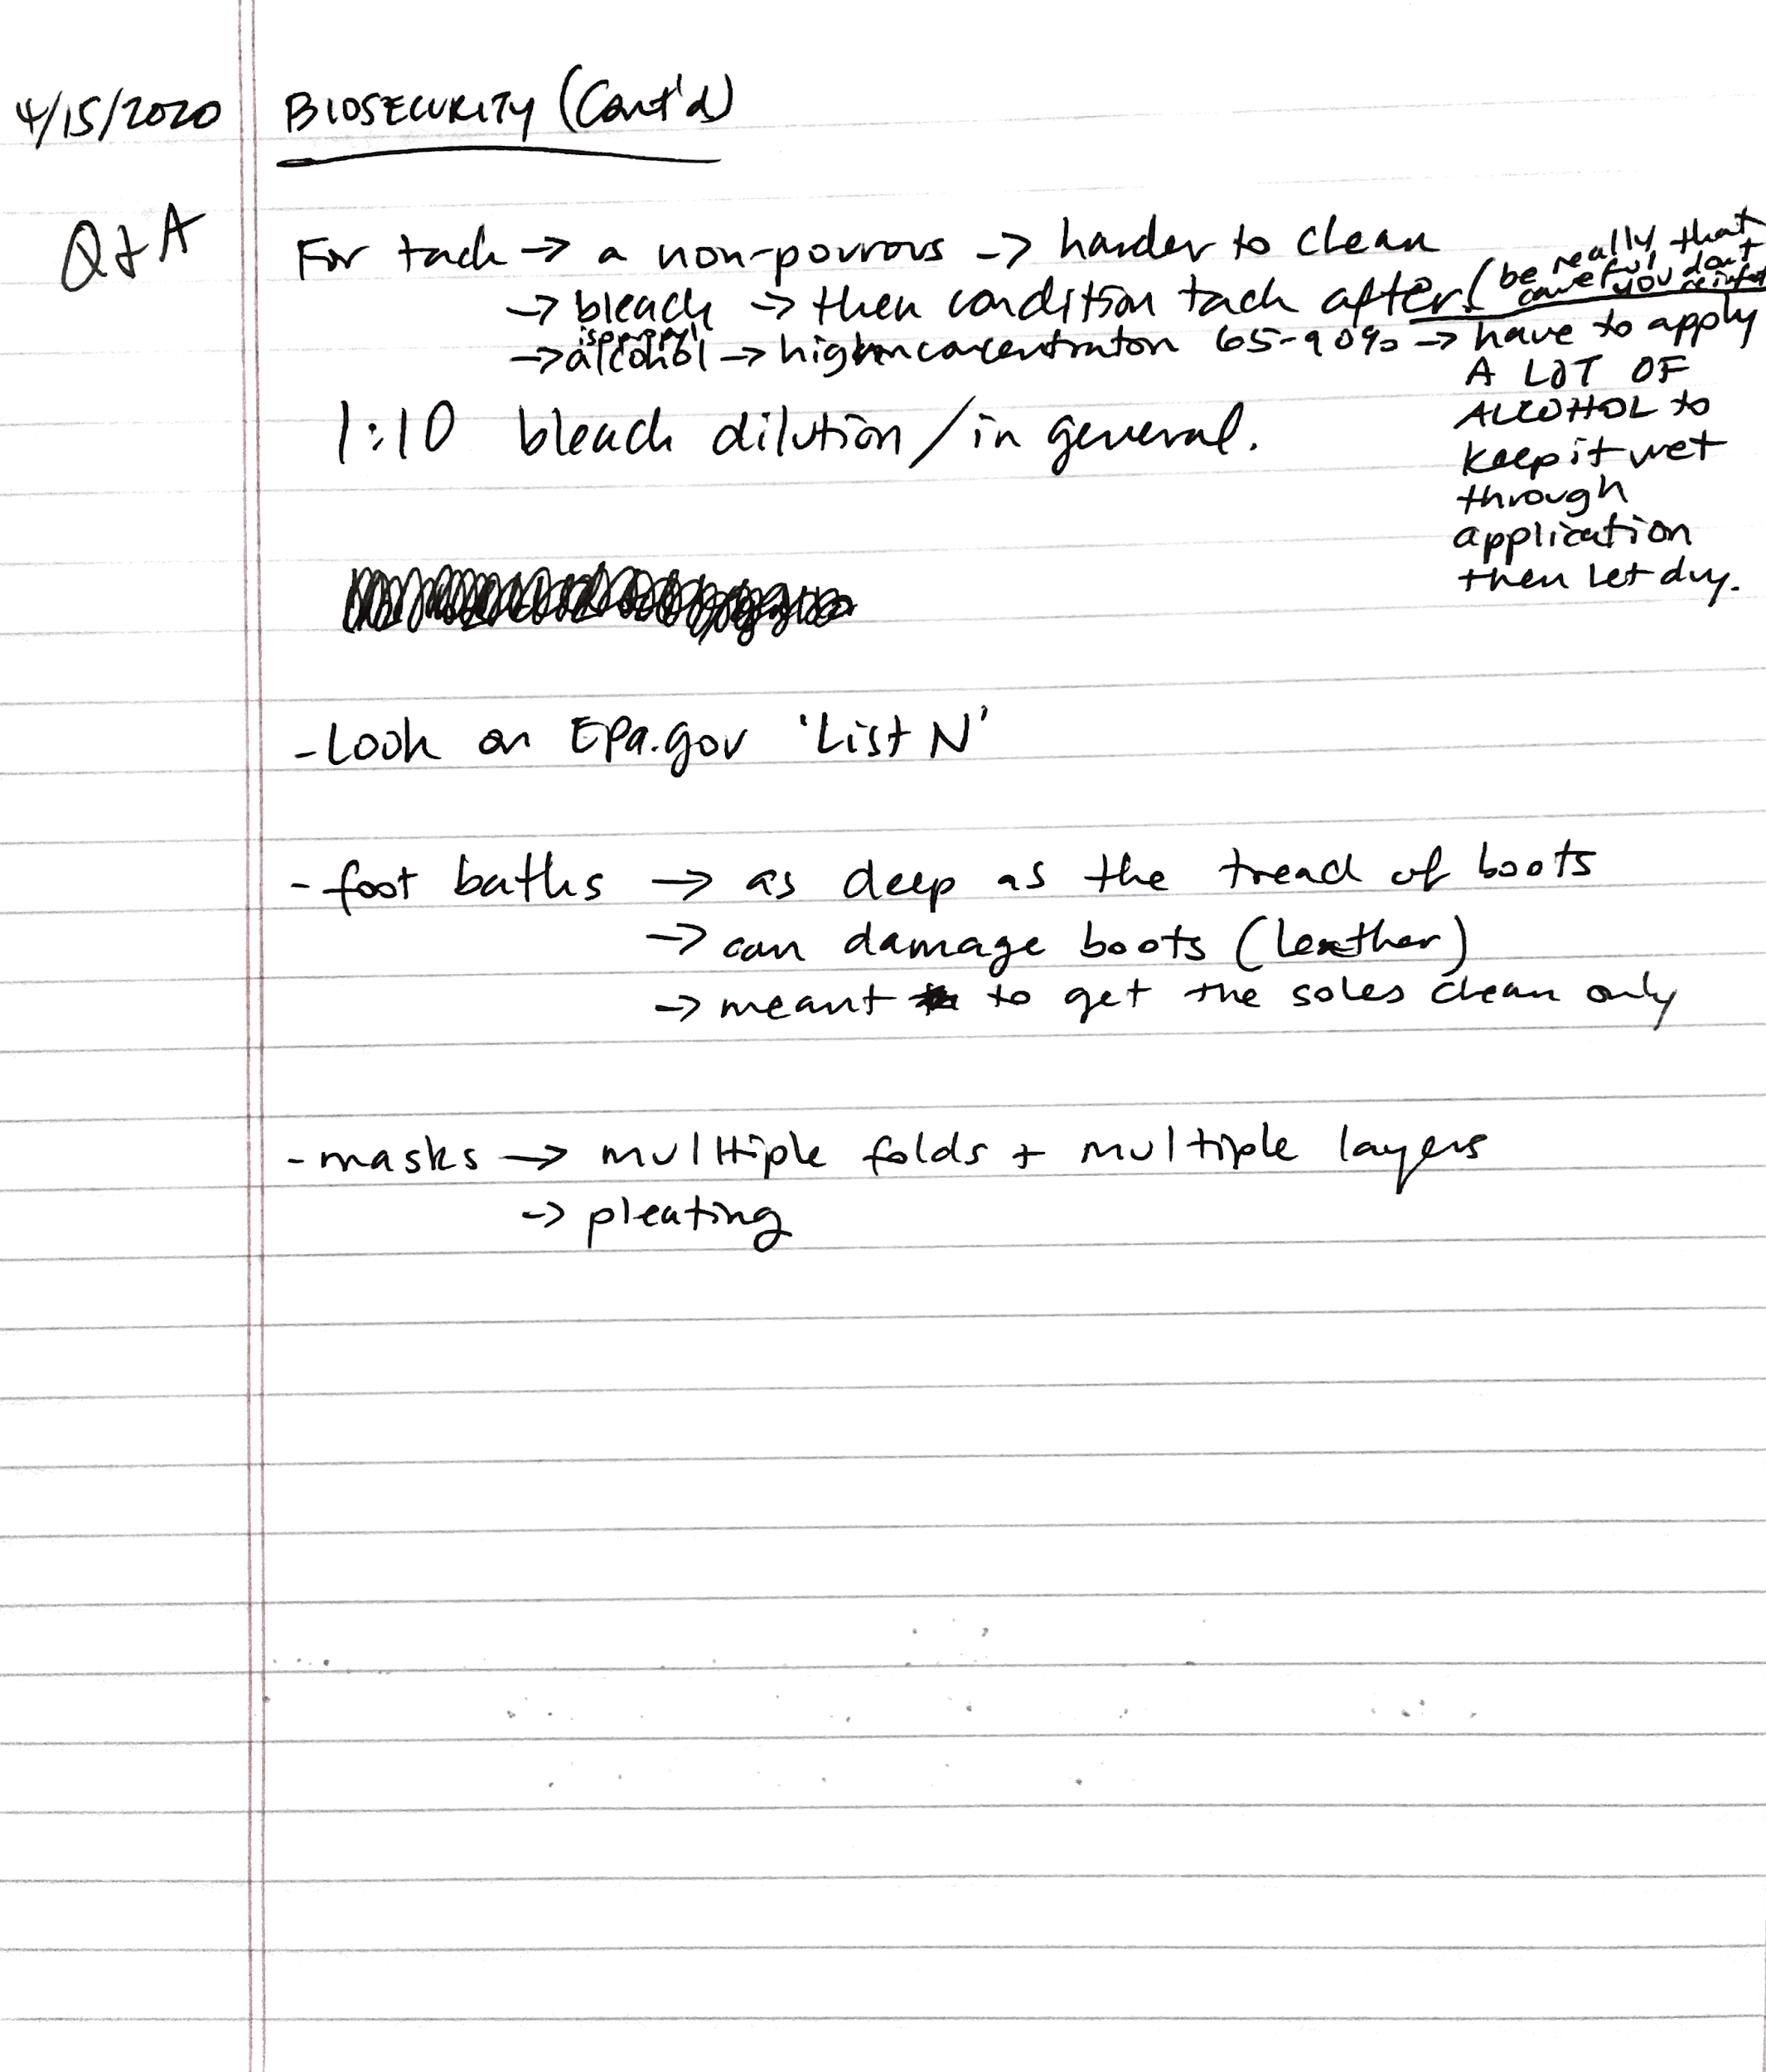 4/15/2020 BIOSECURITY (Cont'd)
Q&A
For tack → a non-pourous → harder to clean
→ bleach → then condition tack after (be really careful that you don't
→ isopropyl alcohol → high concentraton 65-90% → have to apply
A LOT OF
ALCOHOL to
keep it wet
through
application
then let dry.
1:10 bleach dilution / in general.
- Look on EPa.gov 'List N'
- foot baths → as deep as the tread of boots
→ can damage boots (leather)
→ meant to get the soles clean only
- masks → multiple folds + multiple layers
→ pleating